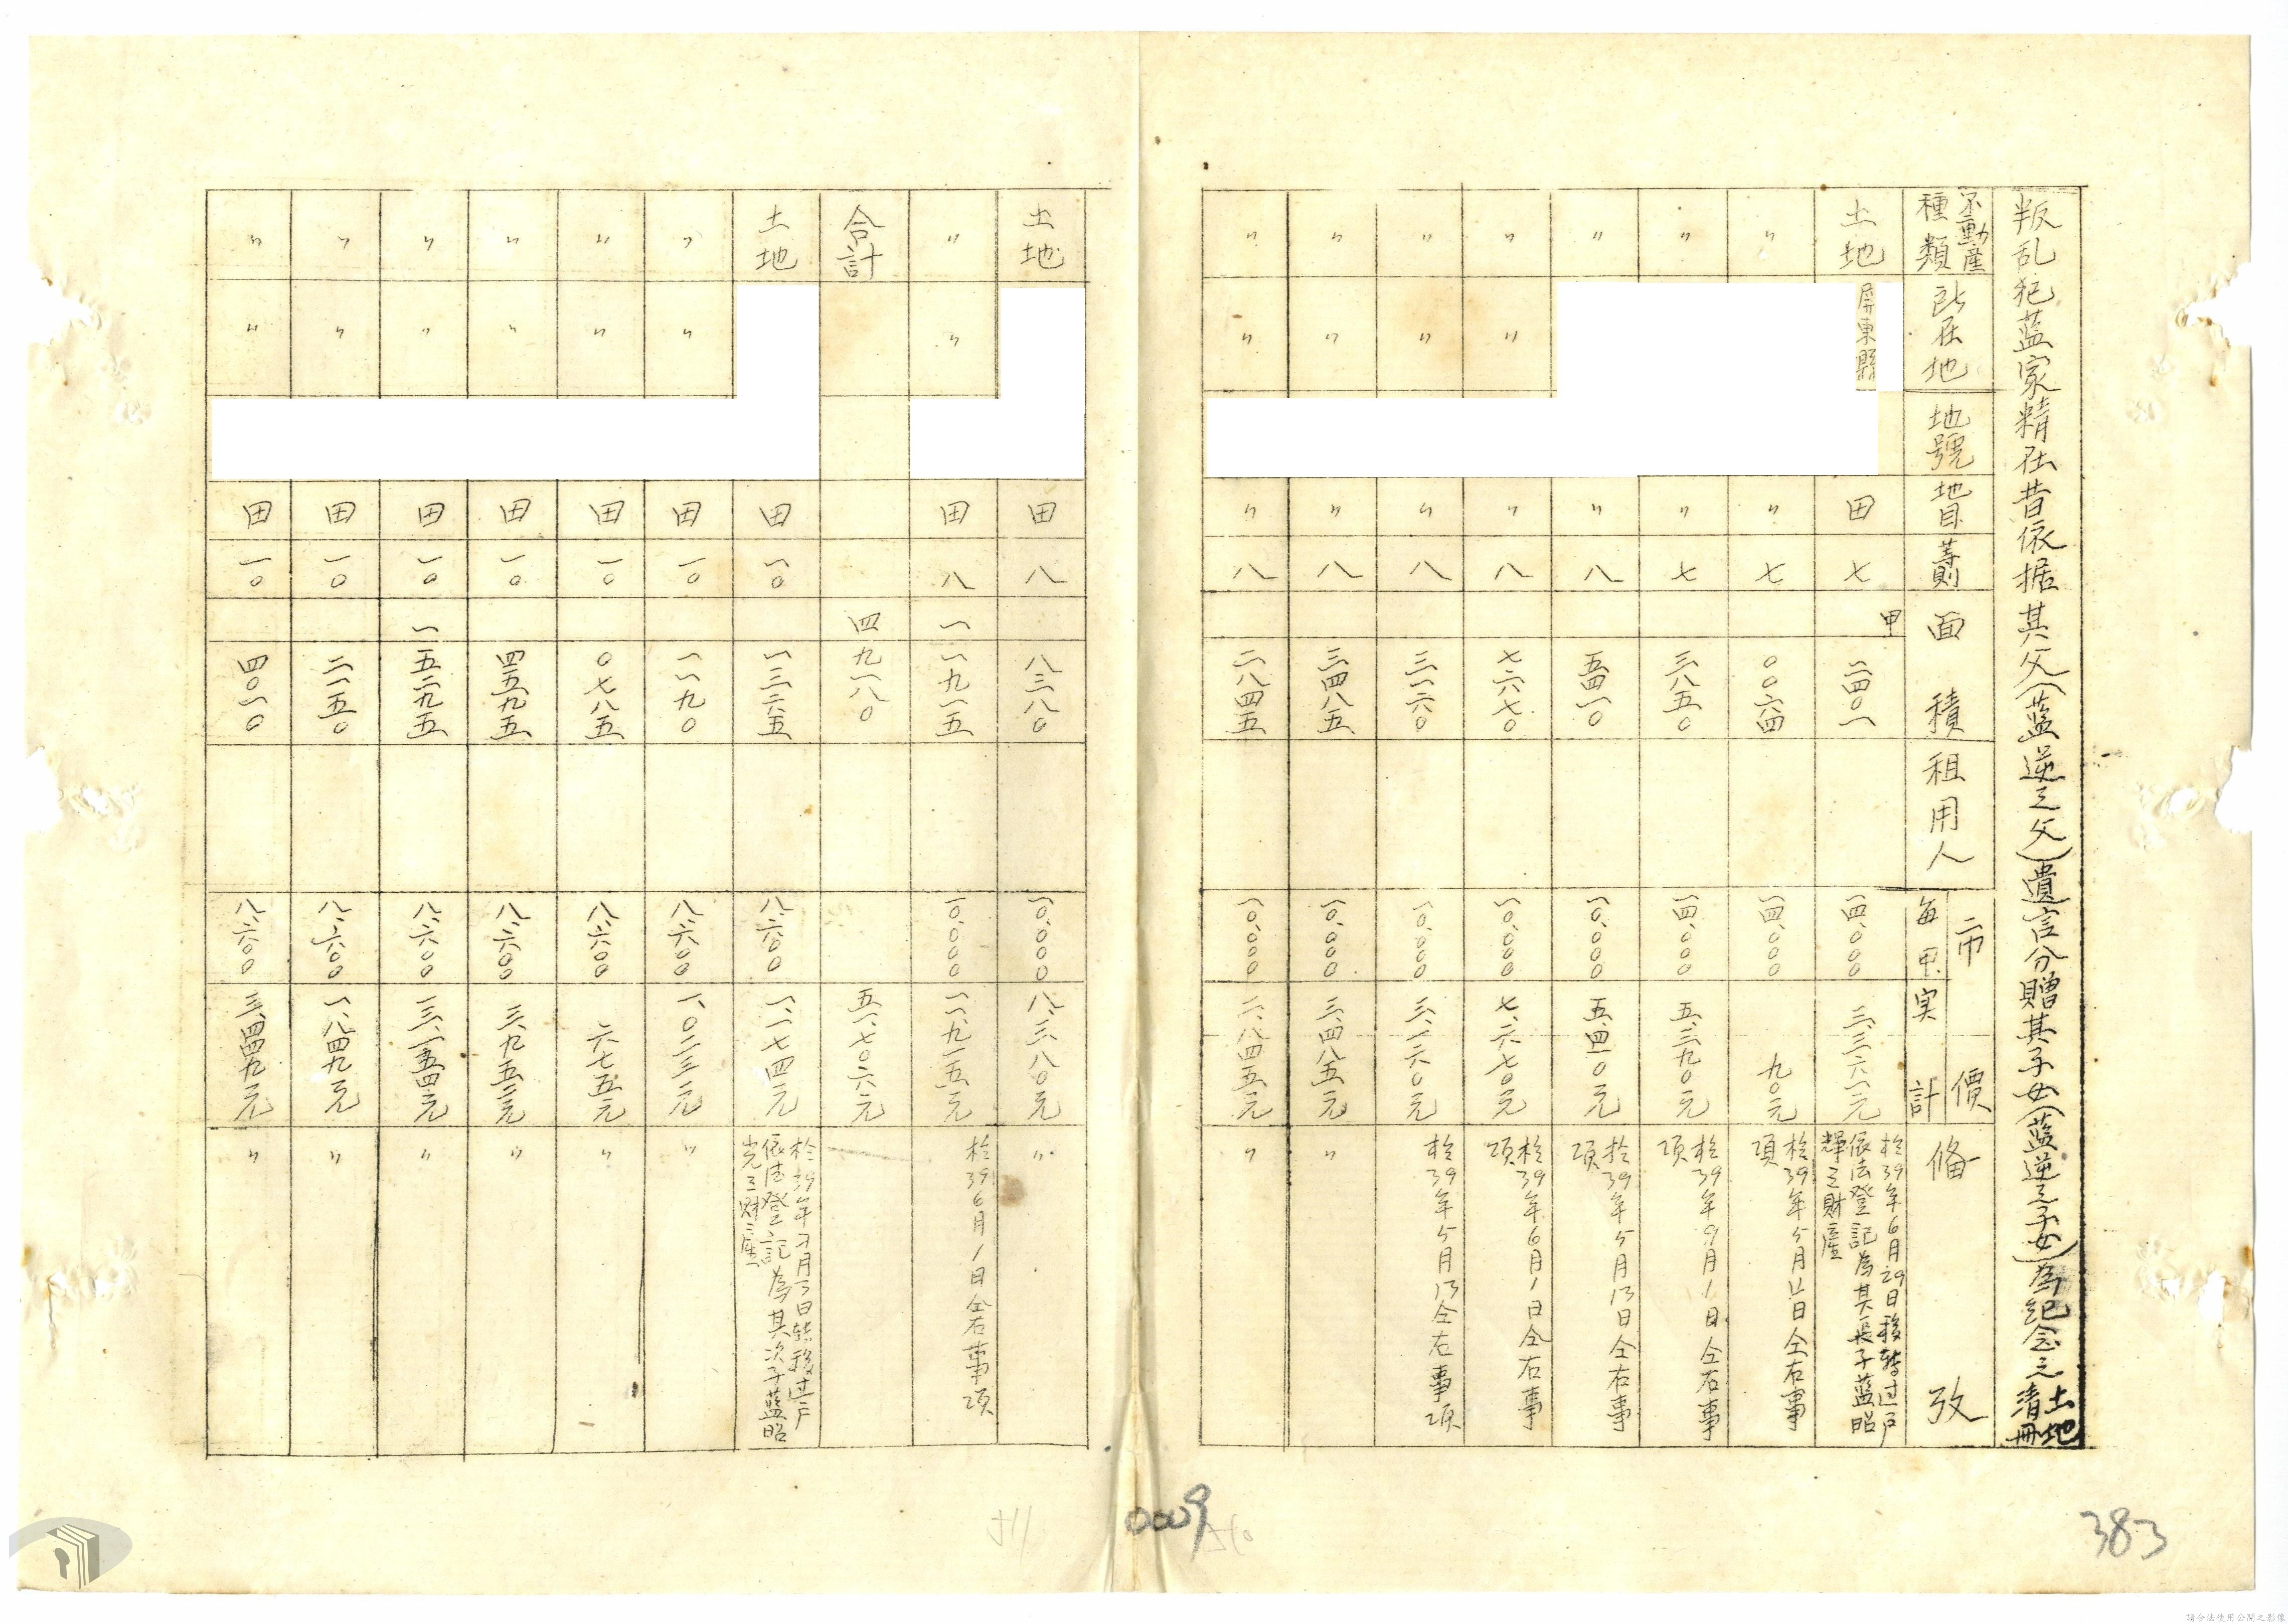 叛乱犯蓝家精在昔依据其父(蓝逆之父)遺言分贈其子女(蓝逆之子女)為紀念之土地清冊
不動產種類 所在地 地號 地目 等則 面積 租用人 市價 每甲 実計 俻攷
土地 屏東縣 田 七 甲 二四〇一 一四、〇〇〇 三、三六一元 於39年6月29日移轉过户依法登記為其長子蓝昭輝之財產
〃 〃 七 〇〇六四 一四、〇〇〇 九〇元 於39年5月 日仝右事項
〃 〃 七 三八五〇 一四、〇〇〇 五、三九〇元 於39年9月1日仝右事項
〃 〃 八 五四一〇 一〇、〇〇〇 五、四一〇元 於39年5月13日仝右事項
〃 〃 〃 八 七六七〇 一〇、〇〇〇 七、六七〇元 於39年6月1日仝右事項
〃 〃 〃 八 三一六〇 一〇、〇〇〇 三、一六〇元 於39年5月13仝右事項
〃 〃 〃 八 三四八五 一〇、〇〇〇 三、四八五元 〃
〃 〃 〃 八 二八四五 一〇、〇〇〇 二、八四五元 〃
土地 田 八 八三八〇 一〇、〇〇〇 八、三八〇元 〃
〃 〃 田 八 一 一九一五 一〇、〇〇〇 一一、九一五元 於39 6月1日仝右事項
合計 四 九一八〇 五一、七〇六元
土地 田 一〇 一三六五 八、六〇〇 一、一七四元 於39年 月 日转移过户依法登記為其次子蓝昭光之財產
〃 〃 田 一〇 一一九〇 八、六〇〇 一、〇二三元 〃
〃 〃 田 一〇 〇七八五 八、六〇〇 六七五元 〃
〃 〃 田 一〇 四五九五 八、六〇〇 三、九五二元 〃
〃 〃 田 一〇 一 五二九五 八、六〇〇 一三、一五四元 〃
〃 〃 田 一〇 二一五〇 八、六〇〇 一、八四九元 〃
〃 〃 田 一〇 四〇一〇 八、六〇〇 三、四四九元 〃
0009
383
請合法使用公開之影像